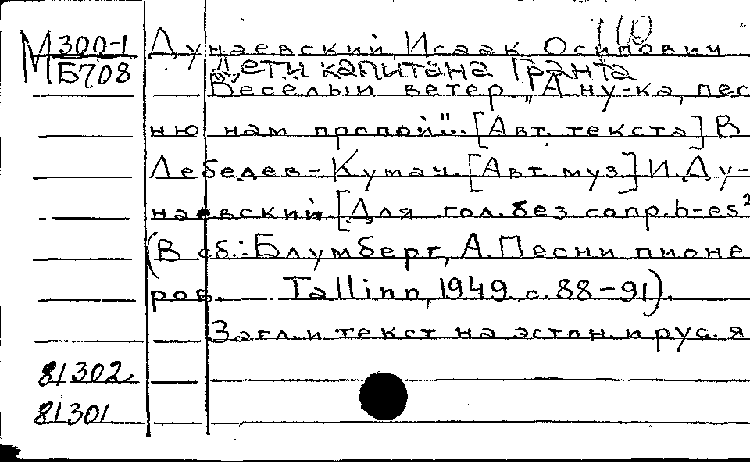 110
М 300-1 Дунаевский, Исаак Осипович
Б708 Дети капитана Гранта
Веселый ветер „А ну-ка, пес
ню нам пропой"... [Авт. текста] В
Лебедев-Кумач. [Авт. муз] И. Ду-
наевский. [Для гол. без сопр. h-es²
(В сб.: Блумберг, А. Песни пионе
ров. Tallinn, 1949. с. 88-91).
Загл. и текст на эстон. и рус. я
81302.
81301